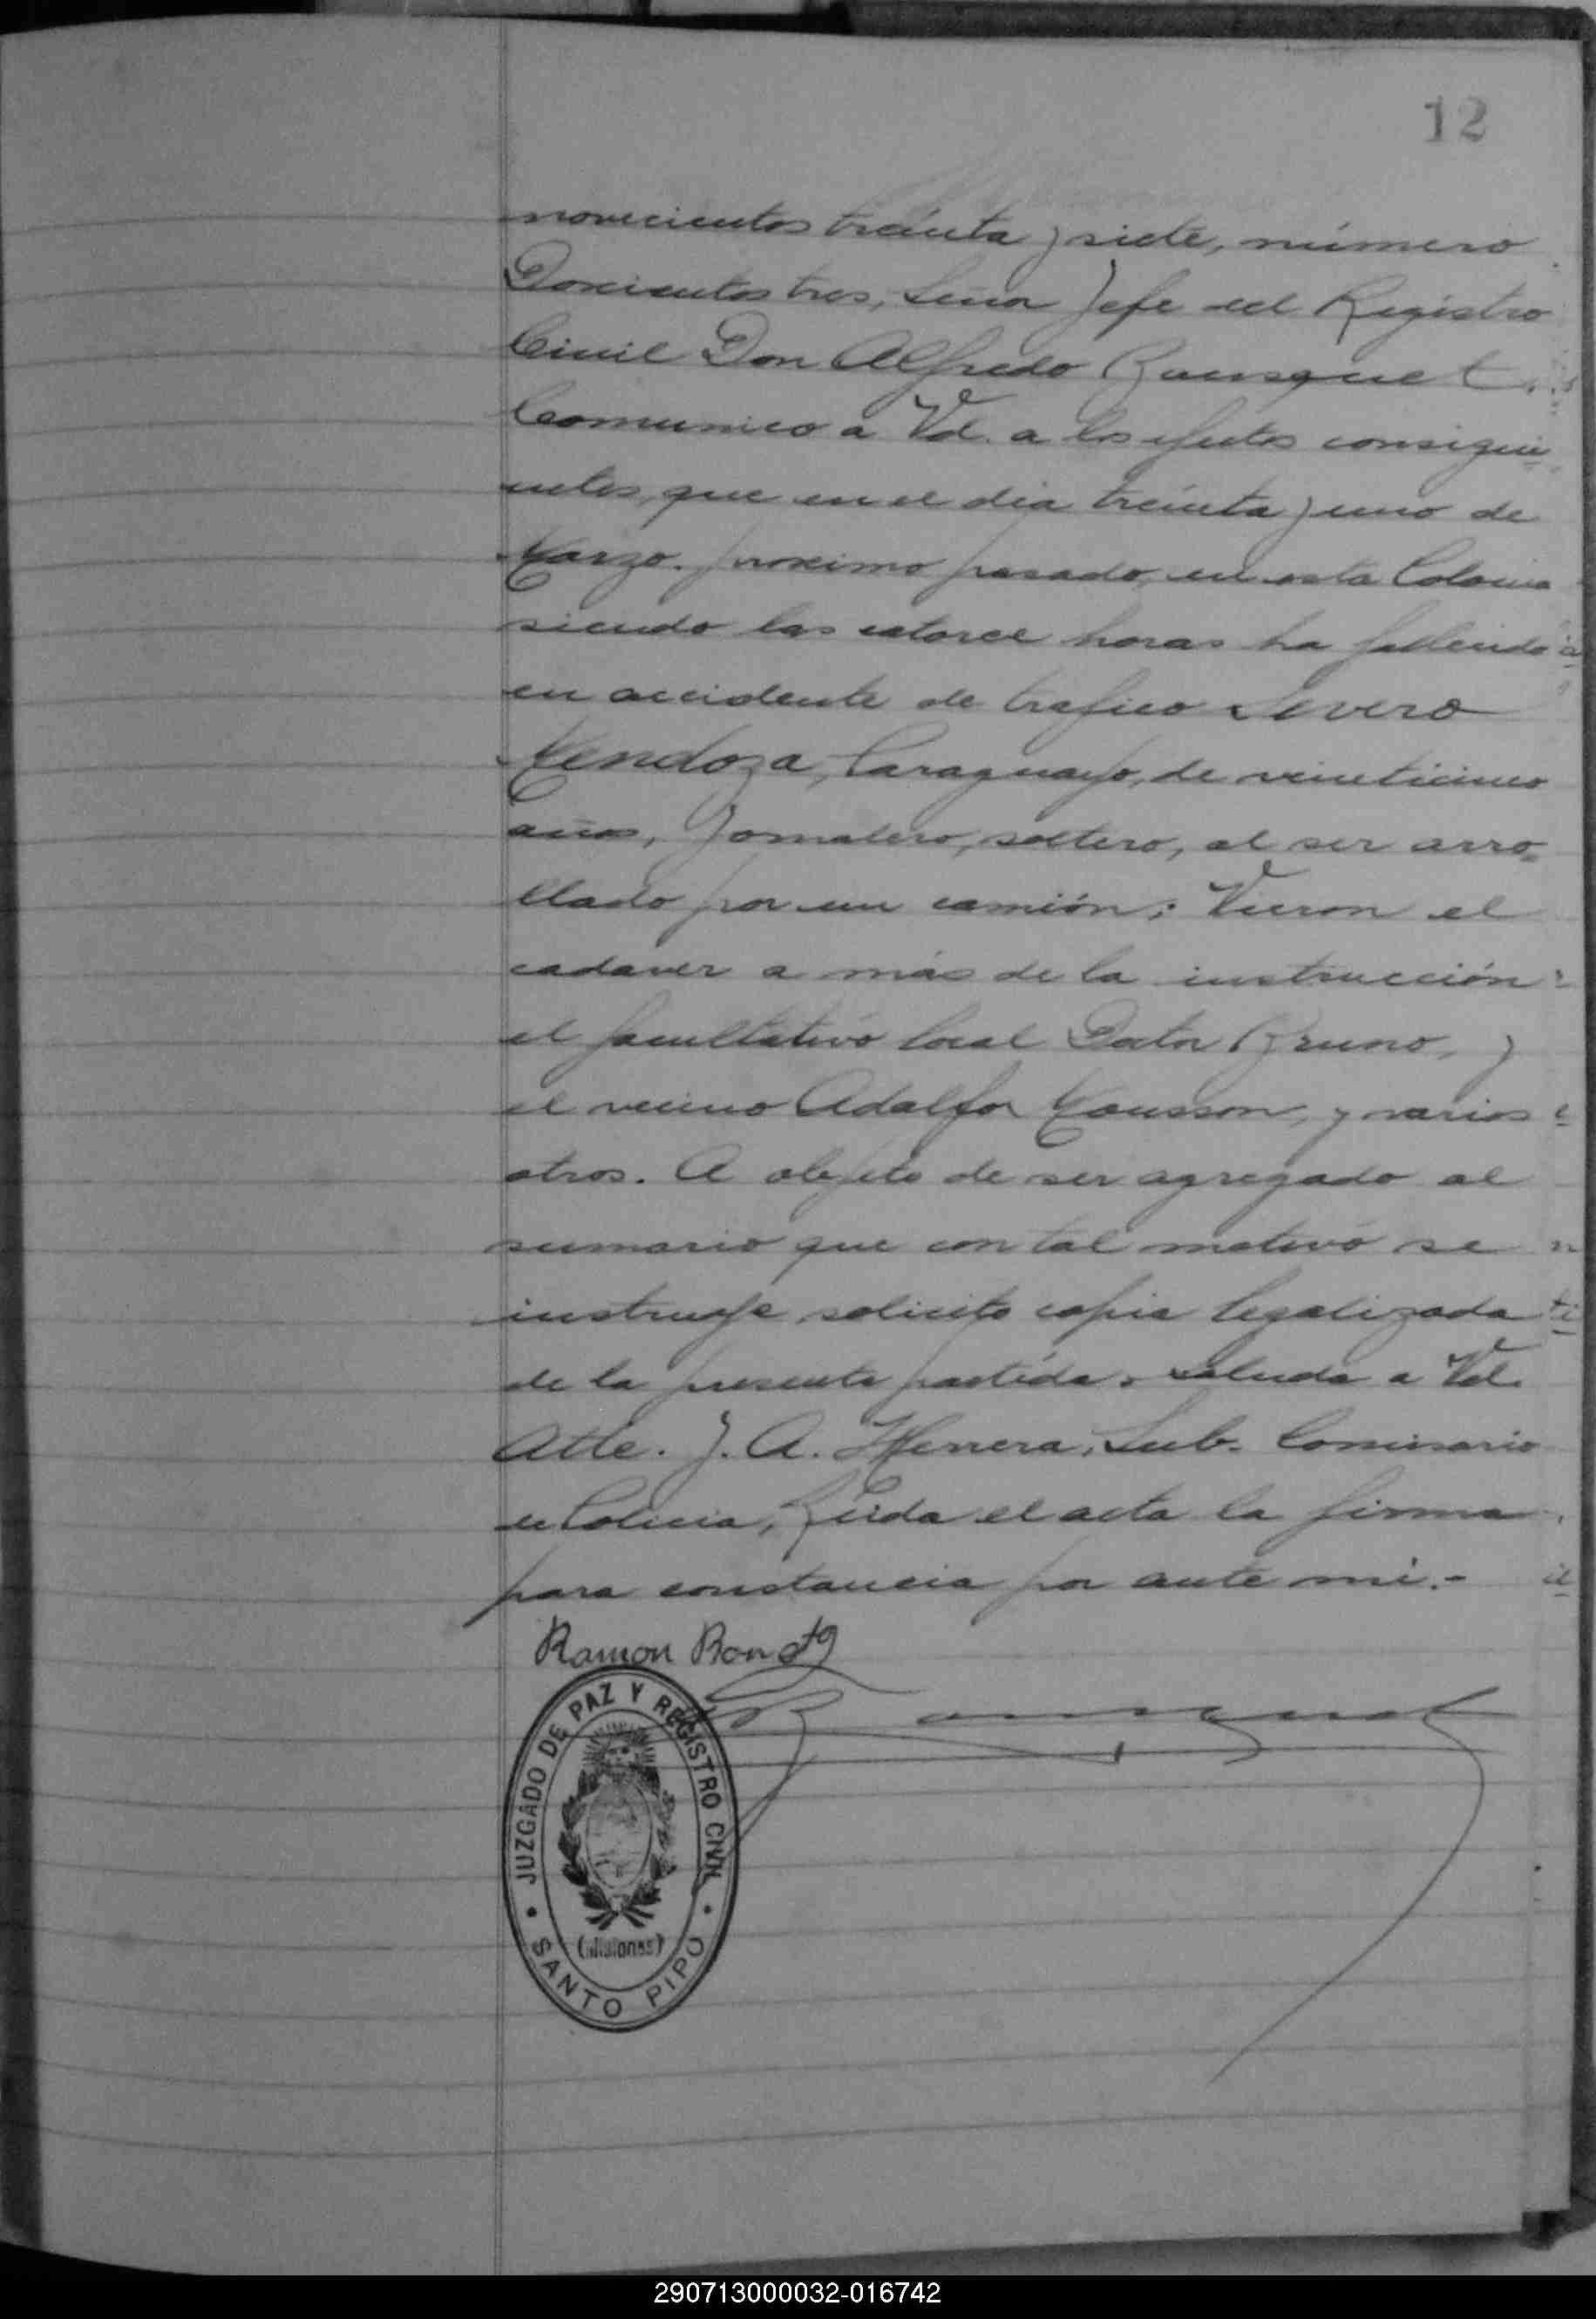 12
novecientos treinta y siete, número
Doscientos tres, Señor Jefe del Registro
Civil Don Alfredo Bousquet.
Comunico a Vd. a los efectos consigui=
entes, que en el dia treinta y uno de
Marzo. proximo pasado, en esta Colonia
siendo las catorce horas ha fallecido
en accidente de trafico Severo
Mendoza, Paraguayo, de veinticinco
años, Jornalero, soltero, al ser arro=
llado por un camión; Vieron el
cadaver a más de la instrucción
el facultativo local Doctor Bruno, y
el vecino Adolfo, y varios
otros. A objeto de ser agregado al
sumario que con tal motivo se
instruye, solicito copia legalizada
de la presente partida. Saluda a Vd.
Atte. J. A. Herrera, Sub. Comisario
de Policia, Leida el acta la firma
para constancia por ante mi.-
Ramon
Bousquet
JUZGADO DE PAZ Y REGISTRO CIVIL
(Misiones)
SANTO PIPO
290713000032-016742